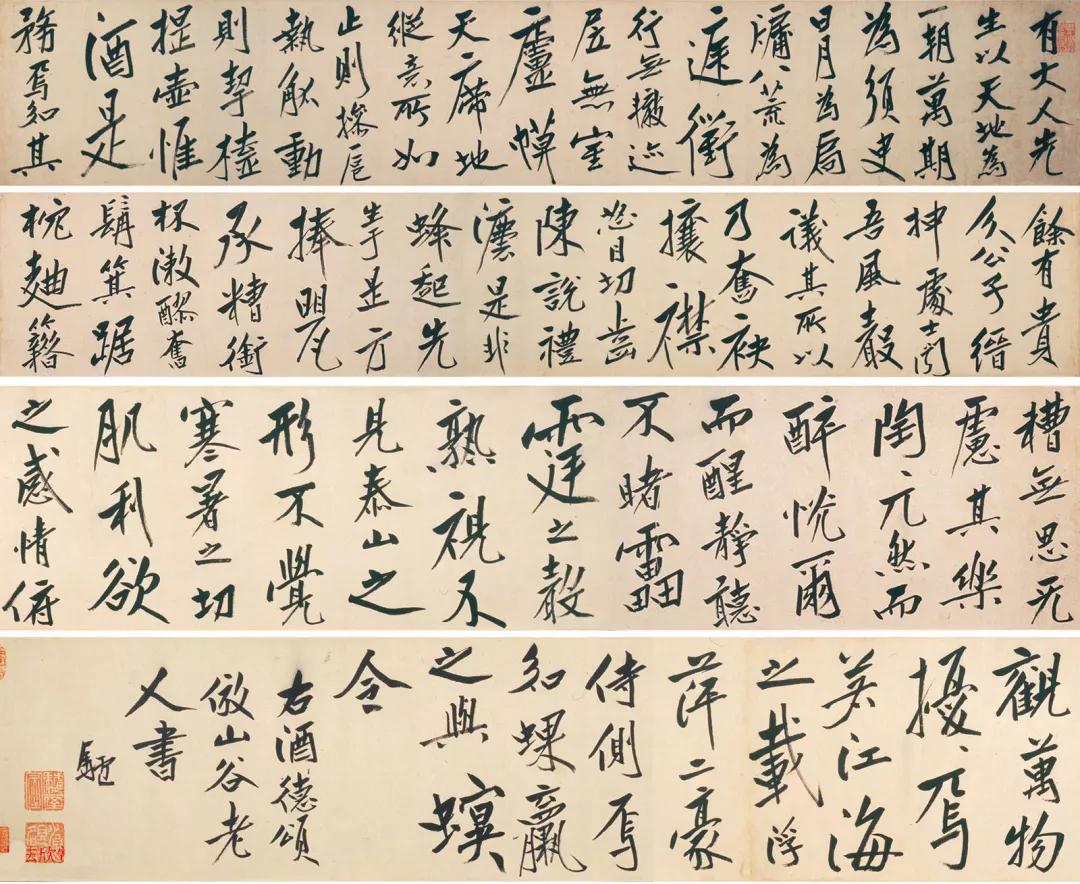 有大人先
生以天地為
一朝萬期
為須臾
日月為扃
牖八荒為
庭衢
行無轍迹
居無室
廬幙
天席地
縱意所如
止則操卮
執觚動
則挈榼
提壺惟
酒是
務焉知其
餘有貴
介公子縉
紳處士聞
吾風聲
議其所以
乃奮袂
攘襟
怒目切齒
陳說禮
灋是非
蜂起先
生于是方
捧罌
承糟銜
杯漱醪奮
髯箕踞
枕麯籍
糟無思无
慮其樂
陶々兀然而
醉恍爾
而醒靜聽
不睹靁
霆之聲
熟視不
見泰山之
形不覺
寒暑之切
肌利欲
之感情俯
觀萬物
擾々焉
若江海
之載浮
萍二豪
侍側焉
知蜾蠃
之與螟
令
右酒德頌
倣山谷老
人書